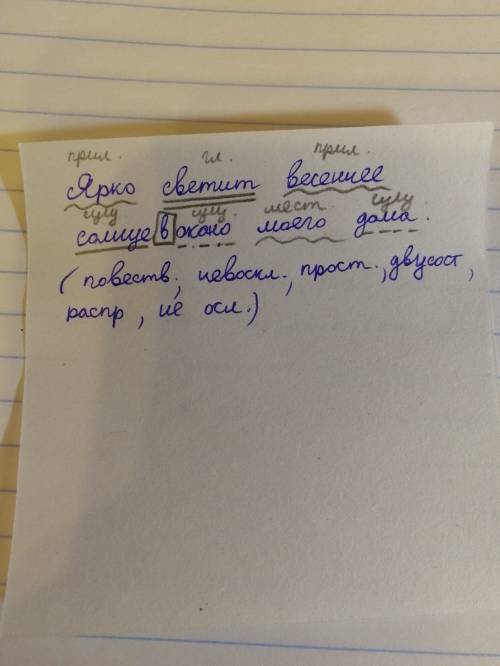 прил. гл. прил.
Ярко светит весеннее
сущ сущ. мест. сущ
солнце в окно моего дома.
(повеств., невоскл., прост., двусост,
распр, не осл.)